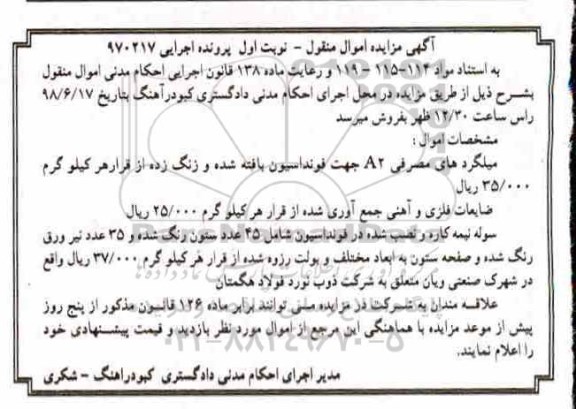 آگهی مزایده اموال منقول - نوبت اول پرونده اجرایی ۹۷۰۲۱۷
به استناد مواد ۱۱۴-۱۱۵-۱۱۹ و رعایت ماده ۱۳۸ قانون اجرایی احکام مدنی اموال منقول
بشرح ذیل از طریق مزایده در محل اجرای احکام مدنی دادگستری کبودرآهنگ بتاریخ ۹۸/۶/۱۷
راس ساعت ۱۲/۳۰ ظهر بفروش میرسد
مشخصات اموال :
میلگرد های مصرفی A۲ جهت فونداسیون بافته شده و زنگ زده از قرارهر کیلو گرم
۳۵/۰۰۰ ریال
ضایعات فلزی و آهنی جمع آوری شده از قرار هر کیلو گرم ۲۵/۰۰۰ ریال
سوله نیمه کاره و نصب شده در فونداسیون شامل ۴۵ عدد ستون رنگ شده و ۳۵ عدد نیر ورق
رنگ شده و صفحه ستون به ابعاد مختلف و بولت رزوه شده از قرار هر کیلو گرم ۳۷/۰۰۰ ریال واقع
در شهرک صنعتی ویان متعلق به شرکت ذوب نورد فولاد هگمتان
علاقه مندان به شرکت در مزایده می توانند برابر ماده ۱۲۶ قانون مذکور از پنج روز
پیش از موعد مزایده با هماهنگی این مرجع از اموال مورد نظر بازدید و قیمت پیشنهادی خود
را اعلام نمایند.
مدیر اجرای احکام مدنی دادگستری کبودراهنگ - شکری
۰۲۱-۸۸۳۴۹۶۷۰-۵